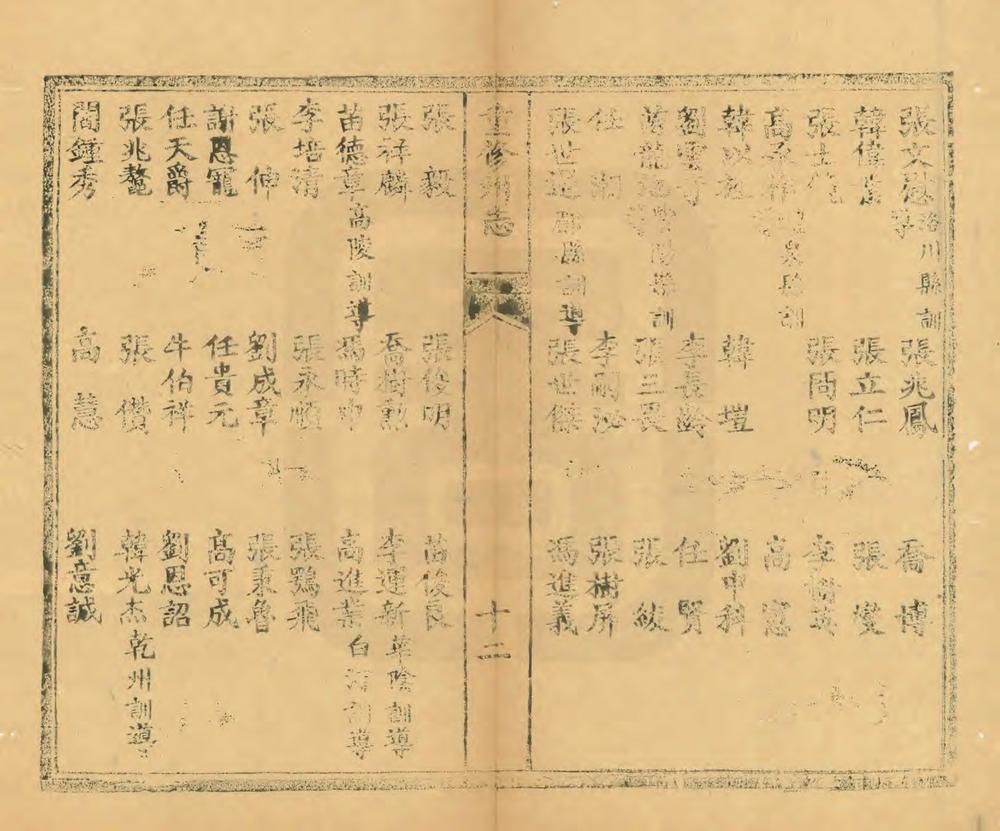 張文慰 洛川縣訓導 張兆鳳 喬博
韓偉 張立仁 張燮
張士 張問明 李樹英
高 縣訓導 高憲
韓以 韓塏 劉甲科
劉 李長齡 任賢
苗龍 陽縣訓導 張三畏 張綾
任 李嗣泌 張樹屏
張世 縣訓導 張世傑 馮進義
重修州志 十二
張毅 張俊明 苗俊良
張祥麟 喬樹勳 李運新 華陰訓導
苗德章 高陵訓導 馮時中 高進業 白河訓導
李培清 張永順 張鶚飛
張伸 劉成章 張秉魯
謝恩寵 任貴元 高可成
任天爵 牛伯祥 劉恩詔
張兆鰲 張儧 韓光杰 乾州訓導
閻鍾秀 高慧 劉意誠